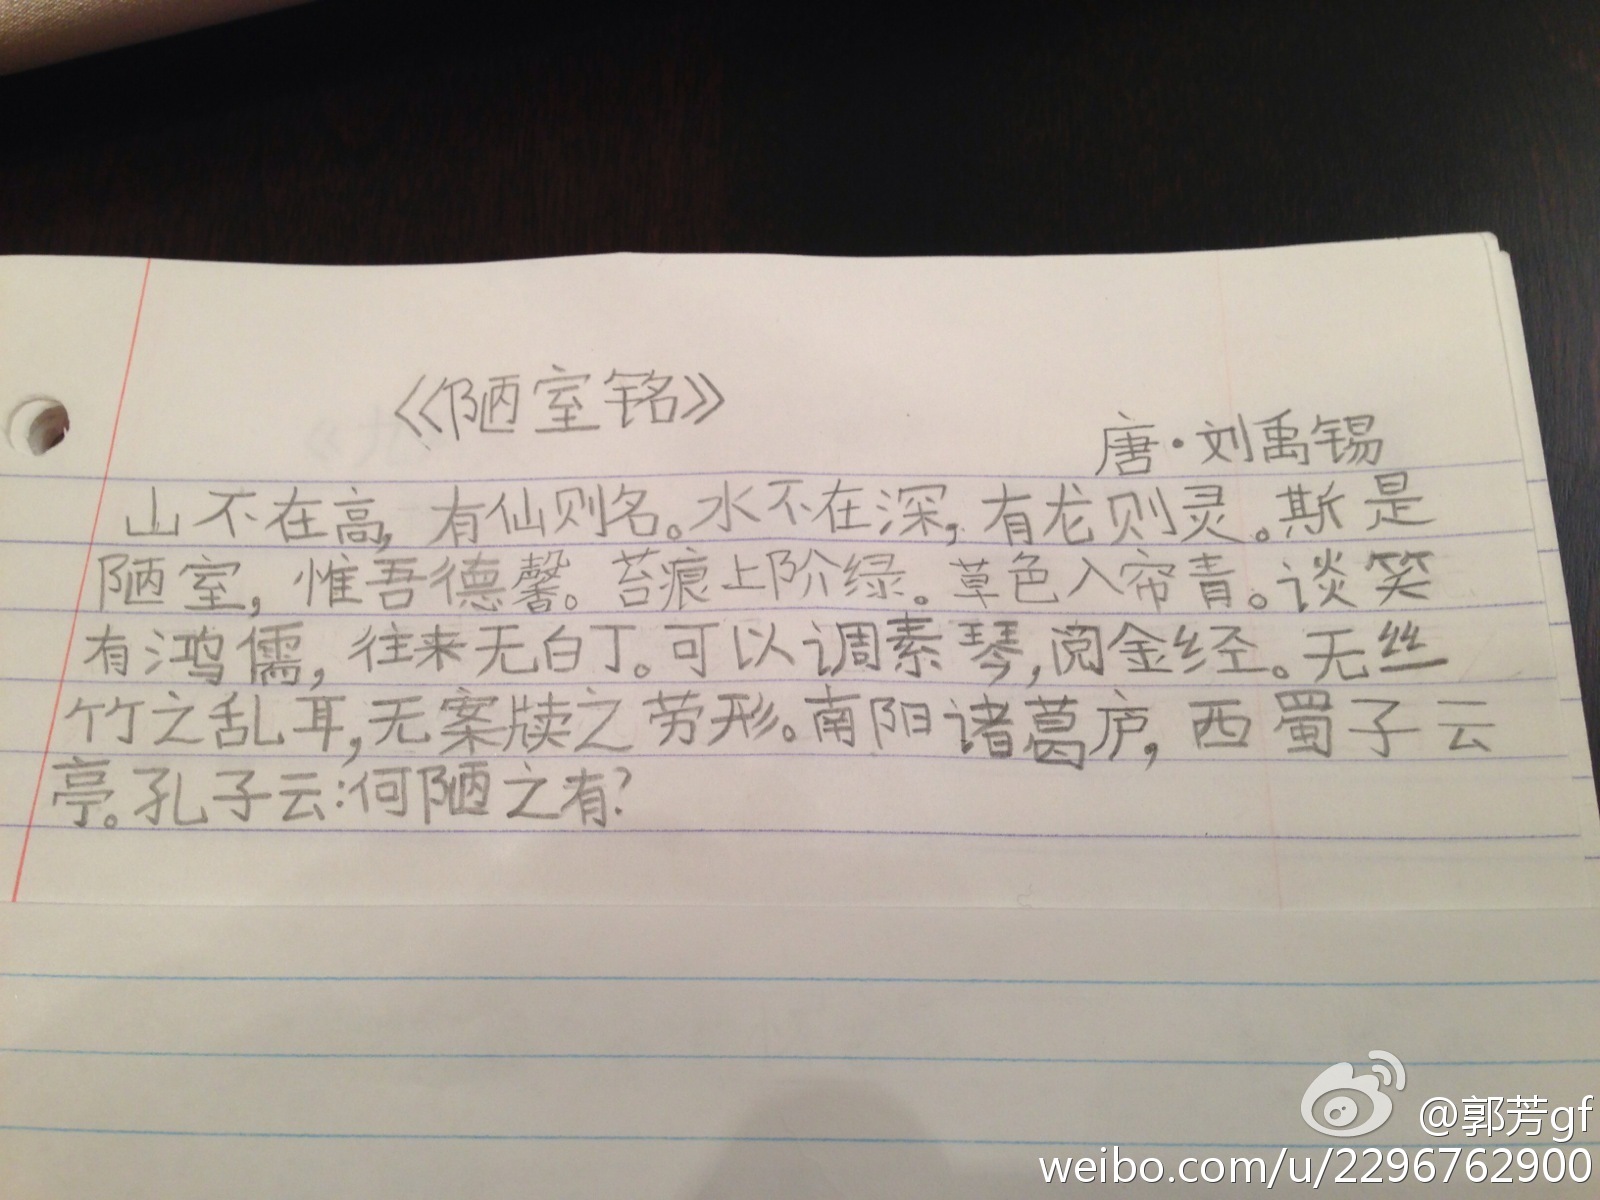 《陋室铭》
唐·刘禹锡
山不在高,有仙则名。水不在深,有龙则灵。斯是
陋室,惟吾德馨。苔痕上阶绿。草色入帘青。谈笑
有鸿儒,往来无白丁。可以调素琴,阅金经。无丝
竹之乱耳,无案牍之劳形。南阳诸葛庐,西蜀子云
亭。孔子云:何陋之有?
@郭芳gf
weibo.com/u/2296762900